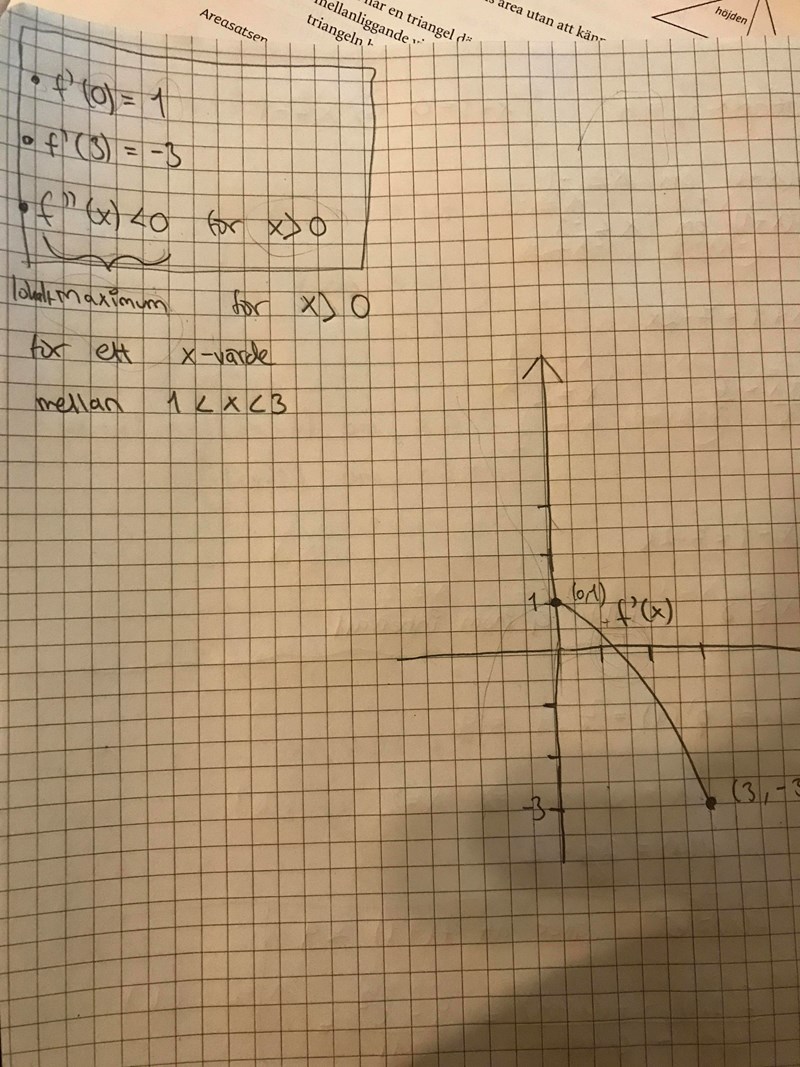 Areasatsen
har en triangel där
mellanliggande
triangeln
area utan att
höjden
• f'(0) = 1
• f'(3) = -3
• f''(x) < 0 för x > 0
lokalt maximum för x > 0
för ett x-värde
mellan 1 < x < 3
1
(0,1)
f'(x)
-3
(3, -3